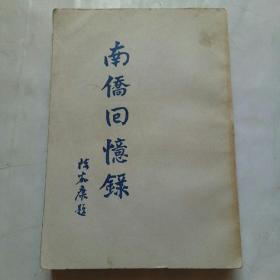 南僑回憶錄
陳嘉庚題